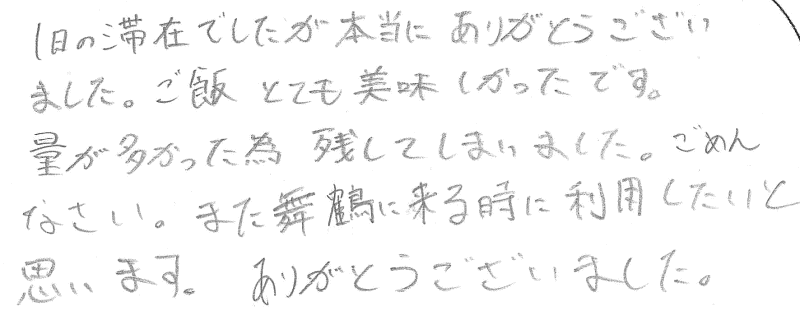 1日の滞在でしたが本当にありがとうござい
ました。ご飯とても美味しかったです。
量が多かった為 残してしまいました。ごめん
なさい。また舞鶴に来る時に利用したいと
思います。ありがとうございました。